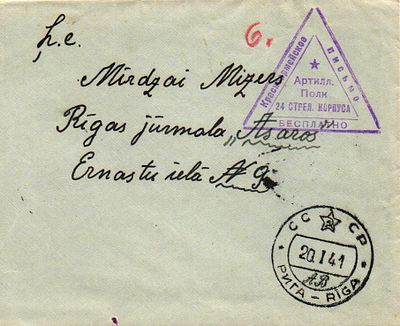 Ļ.c.
6.
Mirdzai Mizers
Rīgas jūrmala „Asaros"
Ernastu ielā № 9.
Красноармейское письмо
★
Артилл.
Полк
24 СТРЕЛ. КОРПУСА
БЕСПЛАТНО
СССР
20.1.41
АВ
РИГА – RĪGA